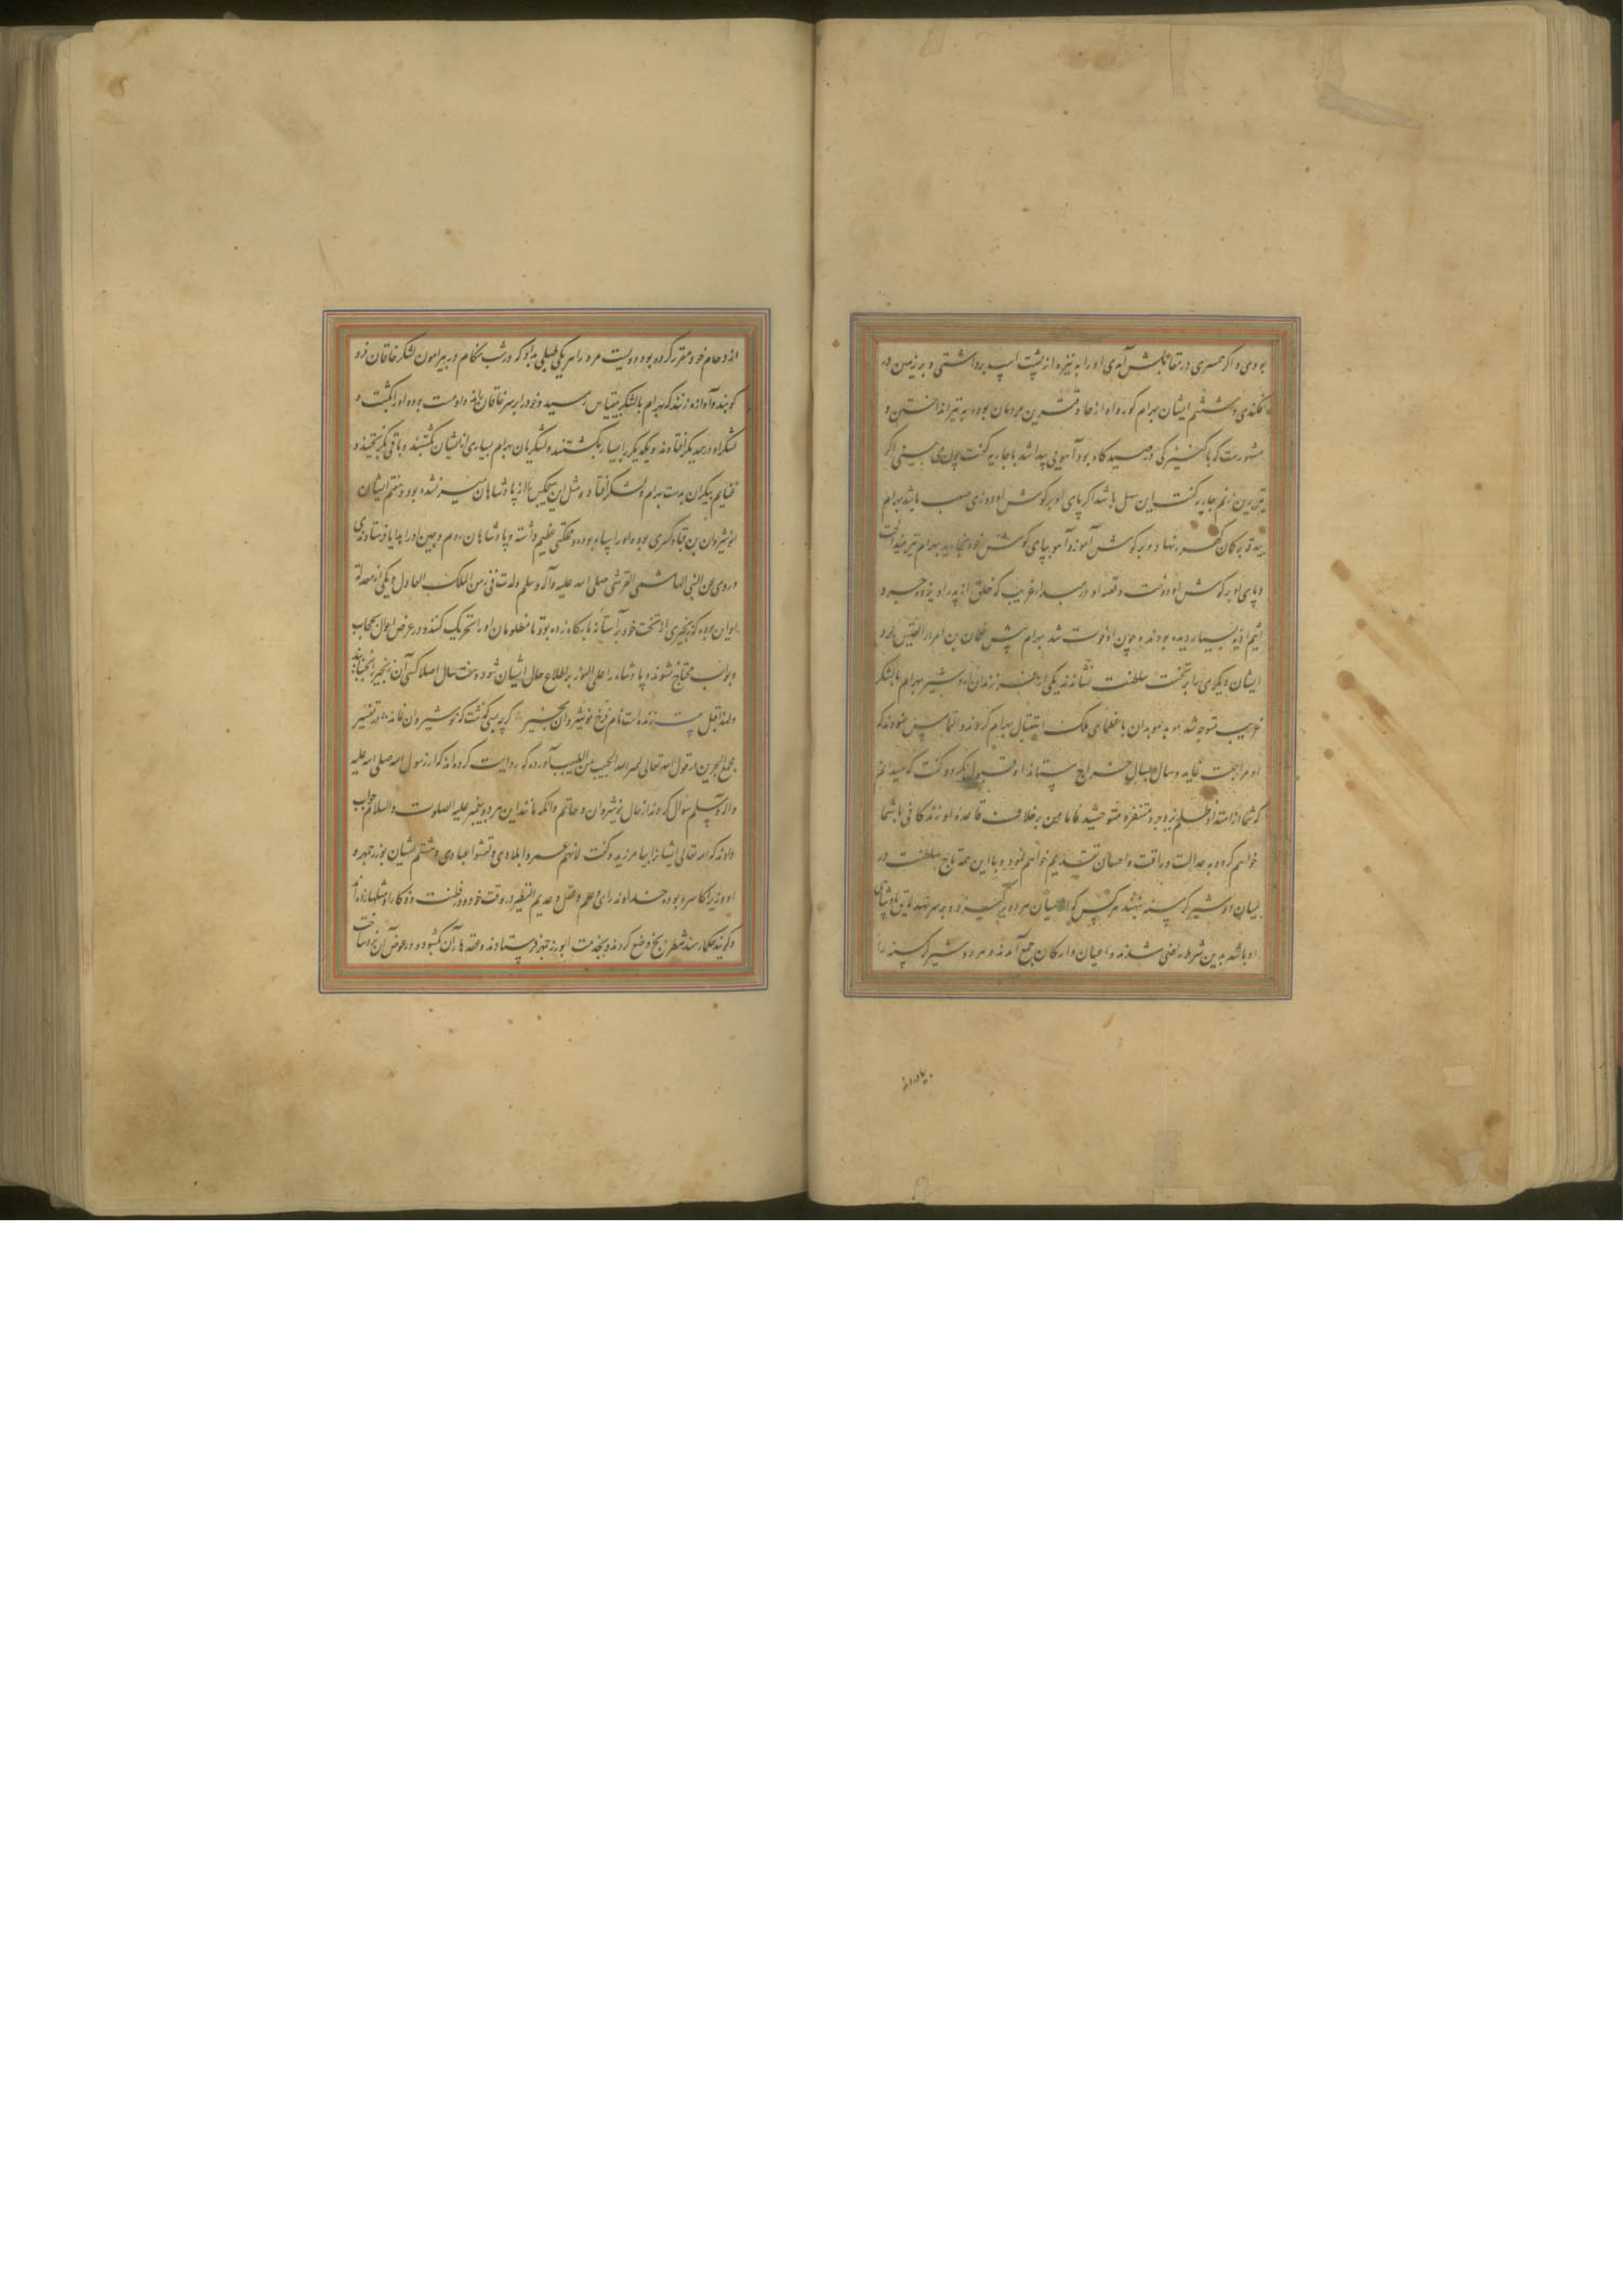 بودی و اگر خسری در مقابلش آمدی او را به نیزه از پشت اسپ برداشتی و بر زمین
افکندی و ششم ایشان بهرام گور و او از حاد مردمان بوده به تیر انداختن و
مشهورست که با کنیزکی در صید گاه بود آهویی پیدا شد با جاریه گفت چون می بینی اگر
تیر برین زنم جاریه گفت این سهل باشد اگر پای او بر گوش او دوزی صعب باشد بهرام
کمان مهره نهاد و بر گوش آهو زد آهو بپای گوش خود بهرام تیر
و پای او بر گوش او دوخت و قصه او در غریب که خلق از پدر او یزدجرد
اثیم اذیه بسیار دیده بودند و چون او فوت شد بهرام پیش نعمان بن امرأ القیس بود
ایشان دیگری را بر تخت سلطنت نشانند یکی از فرزندان اردشیر بهرام با لشکر
عرب متوجه شد موبد موبدان با عظمای ملک استقبال بهرام کردند و التماس نمودند که
او مراجعت نماید و سال بسال خراج بستاند او قبول نکرد و گفت که میدانم
که شما از امتداد ظلم یزدجرد متنفر و متوحشید فاما من بر خلاف قاعده او زندگانی با شما
خواهم کرد و به عدالت و رافت و احسان تقدیم خواهم نمود و با این همه تاج سلطنت در
میان دو شیر گرسنه بنهند هر کس که از میان هر دو برگیرد و بر سر نهد لایق پادشاهی
او باشد بدین شرط راضی شدند و اعیان و ارکان جمع آمدند و هر دو شیر گرسنه را
ازدحام خود مقرر کرده بود دویست مرد را هر یکی طبلی بداد که در شب هنگام در پیرامون لشکر خاقان فرو
کوبند و آوازه زنند که بهرام با لشکر بیقیاس رسید و خود را بر سر خاقان راند و او مست بوده او را بکشت و
لشکر او در همدیگر افتادند و یکدیگر را بسیار بکشتند و لشکریان بهرام بسیاری از ایشان بکشتند و باقی بگریختند و
غنایم بیکران بدست بهرام و لشکر افتاد و مثل این هیچکس را از پادشاهان میسر نشده بود و هفتم ایشان
انوشیروان بن قباد کسری بوده و او را سپاه بوده و مملکتی عظیم داشته و پادشاهان روم و چین او را هدایا فرستادندی
و روی عن النبی الهاشمی القرشی صلی الله علیه وآله وسلم ولدت فی زمن الملک العادل و یکی از معدلة
او این بوده که زنجیری از تخت خود بر آستانه بارگاه زده بود تا مظلومان او را تحریک کنند و در عرض احوال بحجاب
و بواب محتاج نشوند و پادشاه را علی الفور بر اطلاع حال ایشان شود و هفت سال اصلا کسی آن زنجیر نجنبانید
ولهذا قیل بیت زنده است نام فرخ نوشیروان بخیر گرچه بسی گذشت که نوشیروان نماند در تفسیر
مجمع البحرین در قول الله تعالی آورده که روایت کرده اند که از رسول الله صلی الله علیه
واله وسلم سؤال کردند از حال نوشیروان و حاتم و آنکه مانند این هر دو پیغمبر علیه الصلوت والسلام جواب
دادند که الله تعالی ایشانرا بیامرزید و گفت لانهم عمروا بلادی و نعشوا عبادی و هشتم ایشان بوزرجمهر و
او وزیر اکاسره بوده خداوند رای و علم و عقل و عدیم النظیر در وقت خود و در فطنت و ذکا را مثلها زده اند
و گویند حکمار هند شطرنج وضع کردند و بخدمت ابوزرجمهر فرستادند و عقدهاء آن گشود و در عوض آن نرد ساخت